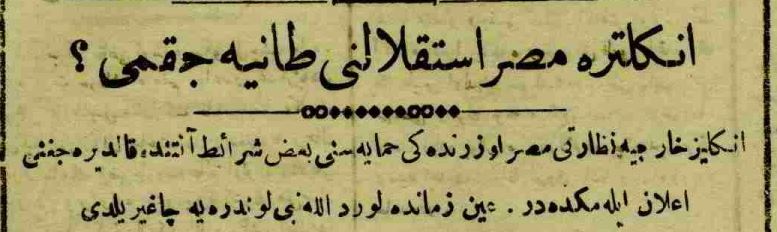 انكلتره مصر استقلالنی طانیه جقمی ؟
انكلیز خارجیه نظارتی مصر اوزرنده كی حمایه سنی بعض شرائط آلتنده قالدیره جغنی
اعلان ایله مكده در . عین زمانده لورد اللنبی لوندره یه چاغیریلدی